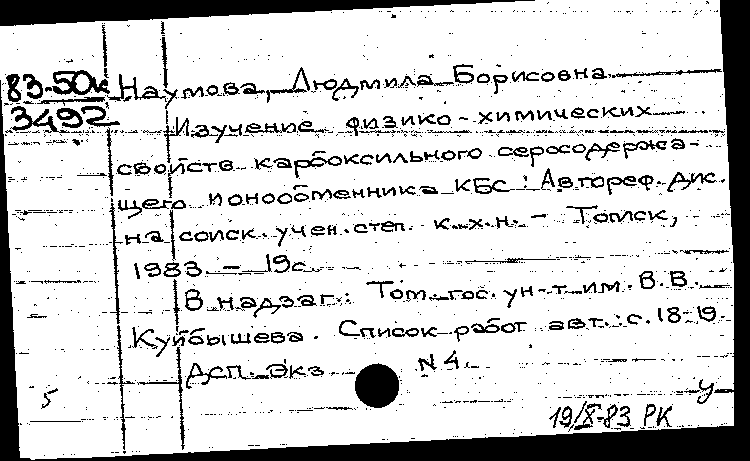 83-50к Наумова, Людмила Борисовна
3492
Изучение физико-химических
свойств карбоксильного серосодержа-
щего ионообменника КБС : Автореф. дис.
на соиск. учен. степ. к.х.н. - Томск,
1983. - 19с.
В надзаг.: Том. гос. ун-т им. В.В.
Куйбышева. Список работ авт.: с.18-19.
ДСП. Экз N 4.
5
у
19/X-83 РК